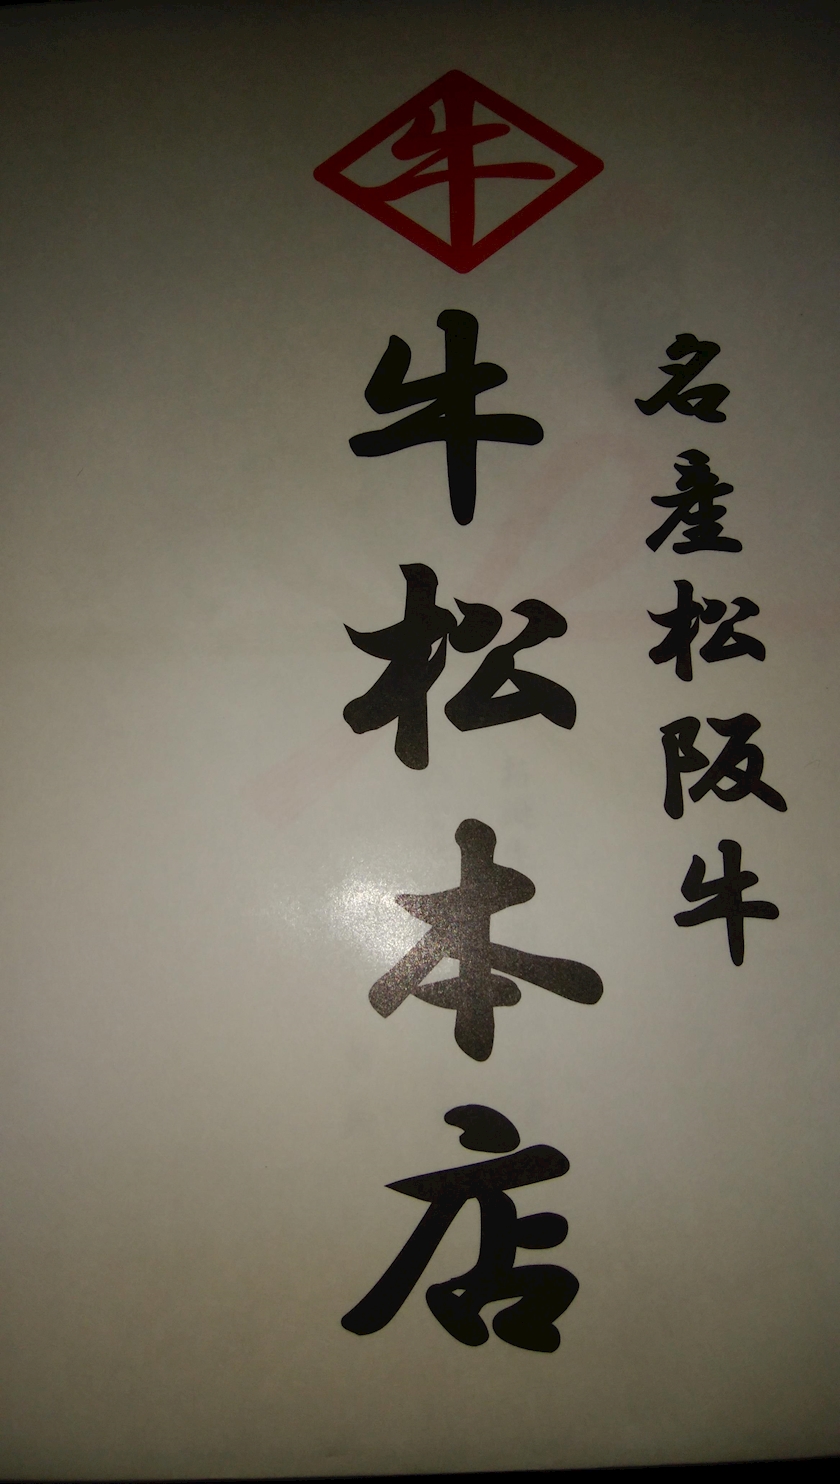 名産松阪牛
牛
牛松本店